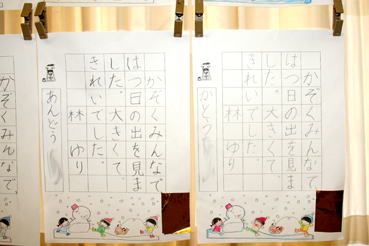 かぞくみんなで
はつ日の出を見ま
した。大きくて
きれいでした。
林 ゆり
かとう
かぞくみんなで
はつ日の出を見ま
した。大きくて
きれいでした。
林 ゆり
あんどう
かぞくみんなで